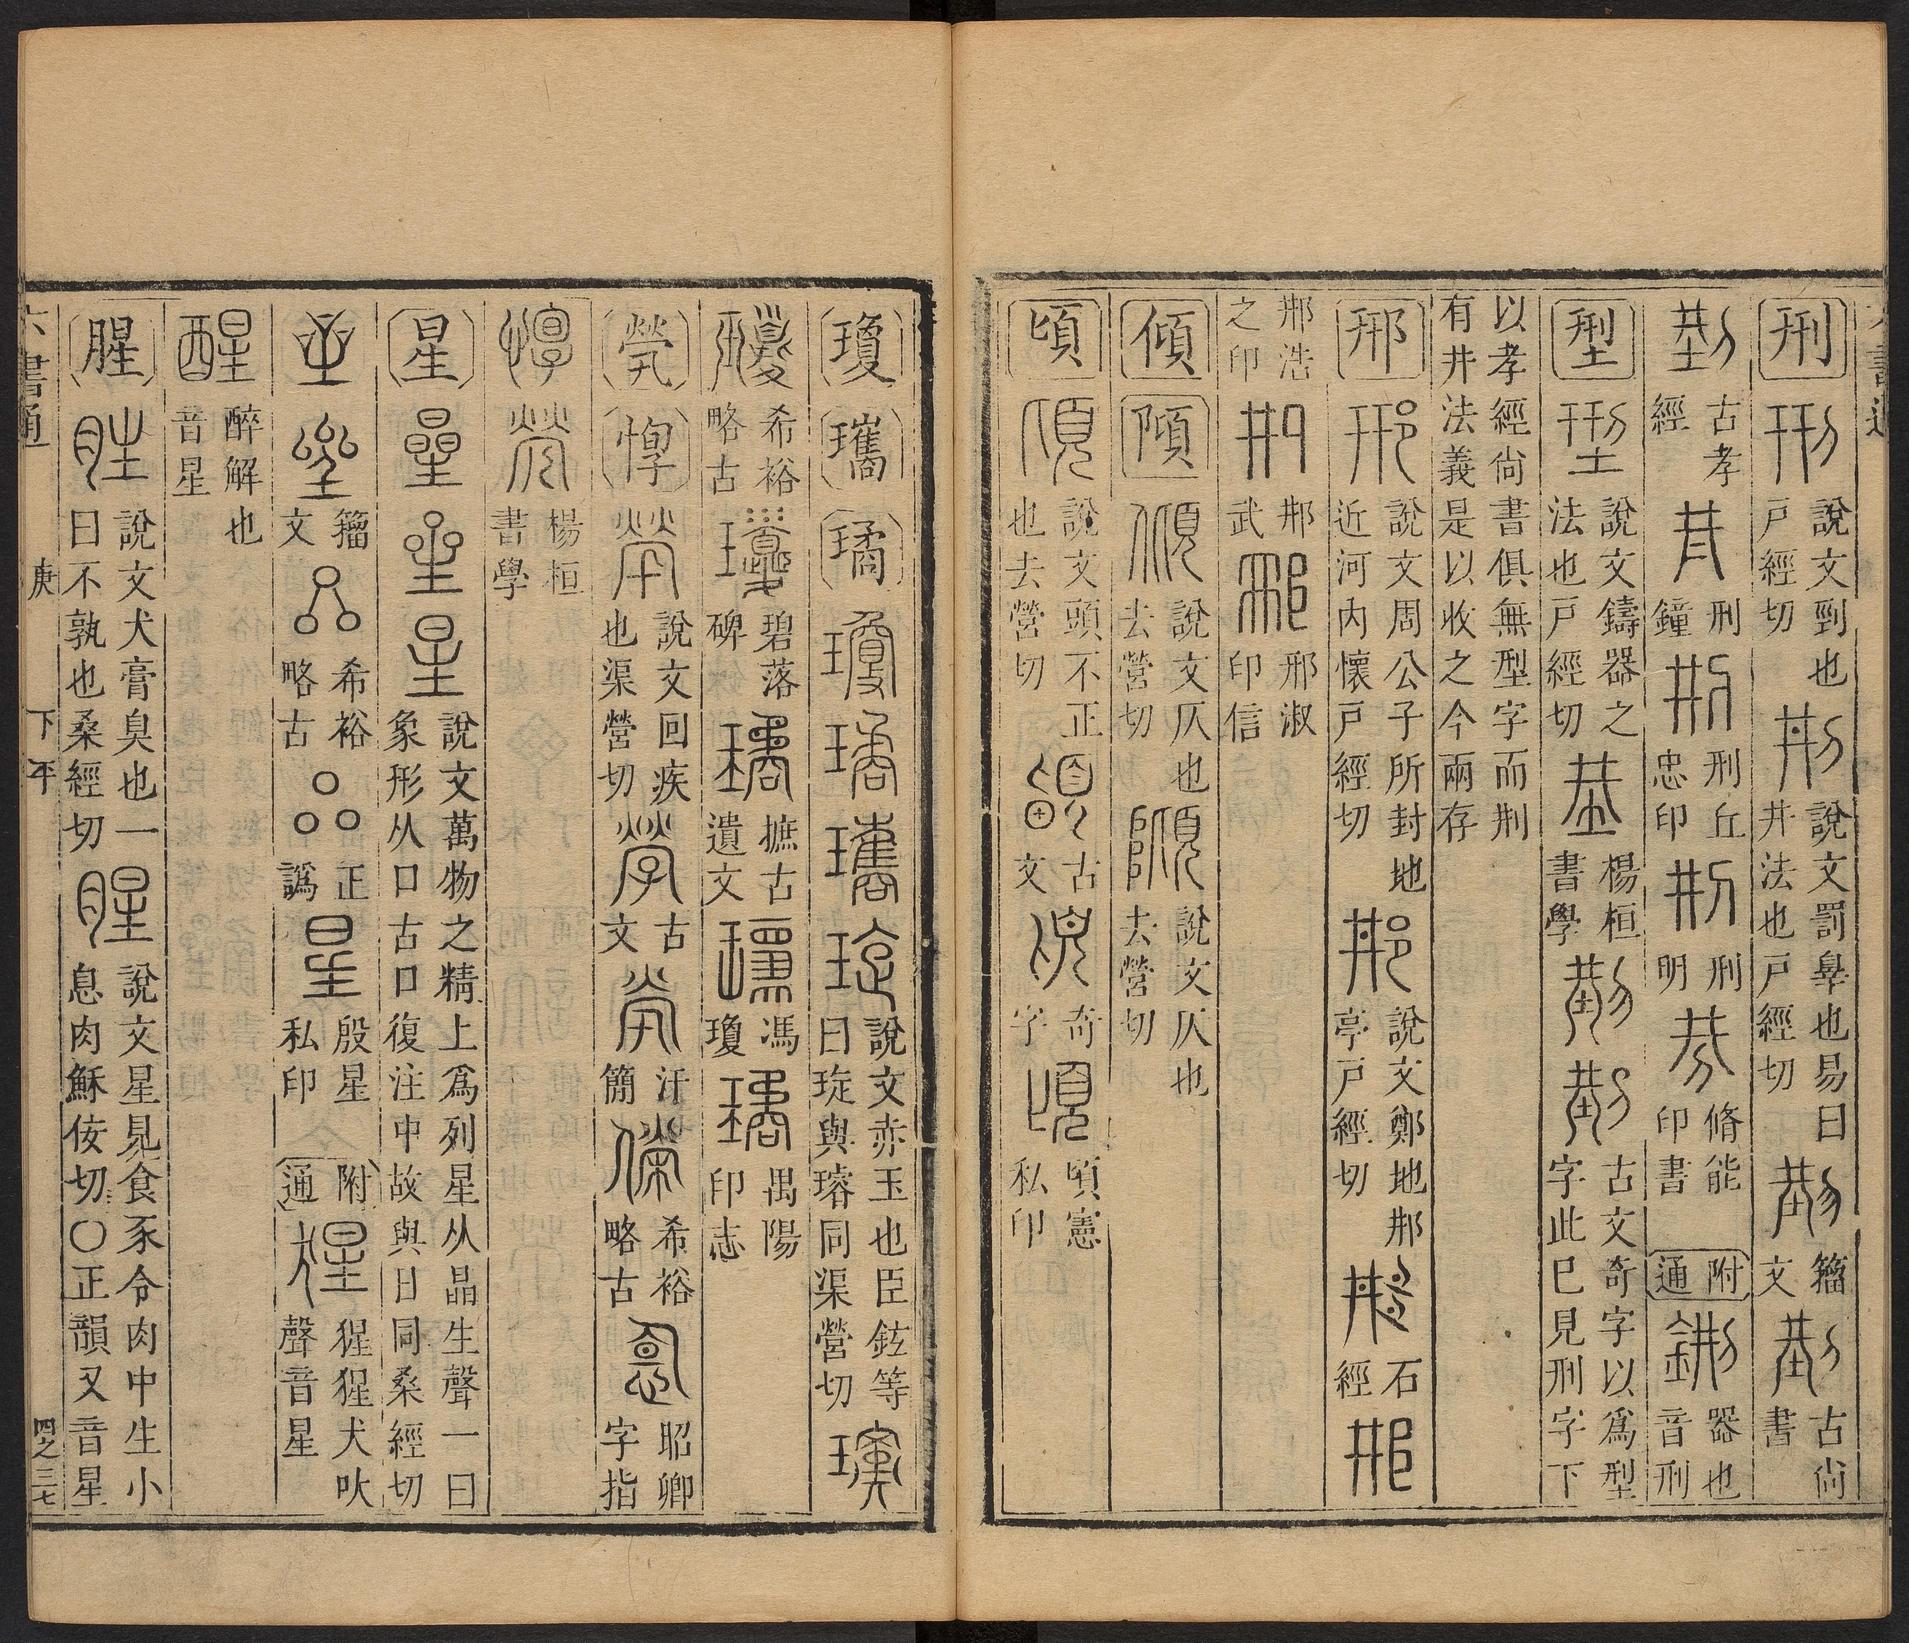 六書通
刑 說文剄也戶經切 說文罰辠也易曰井法也戶經切 籀文 古尚書
古孝經 刑鐘 刑丘忠印 刑明 脩能印書 附通 器也音刑
型 說文鑄器之法也戶經切 楊桓書學 古文奇字以爲型字此巳見刑字下
以孝經尙書俱無型字而荆有井法義是以收之今兩存
邢 說文周公子所封地近河內懷戶經切 說文鄭地邢亭戶經切 石經
邢浩之印 邢武 邢淑印信
傾 隕 說文仄也去營切 說文仄也去營切
頃 說文頭不正也去營切 古文 奇字 頃憲私印
瓊 瓗 璚 說文赤玉也臣鉉等曰琁與璿同渠營切
希裕略古 碧落碑 摭古遺文 馮瓊 禺陽印志
煢 惸 說文回疾也渠營切 古文 汗簡 希裕略古 昭卿字指
楊桓書學
星 說文萬物之精上爲列星从晶生聲一曰象形从口古口復注中故與日同桑經切
籀文 希裕略古 正譌 殷星私印 附通 猩猩犬吠聲音星
醒 醉解也音星
腥 說文犬膏臭也一曰不孰也桑經切 說文星見食豕令肉中生小息肉穌佞切〇正韻又音星
六書通 庚 下平 四之三七